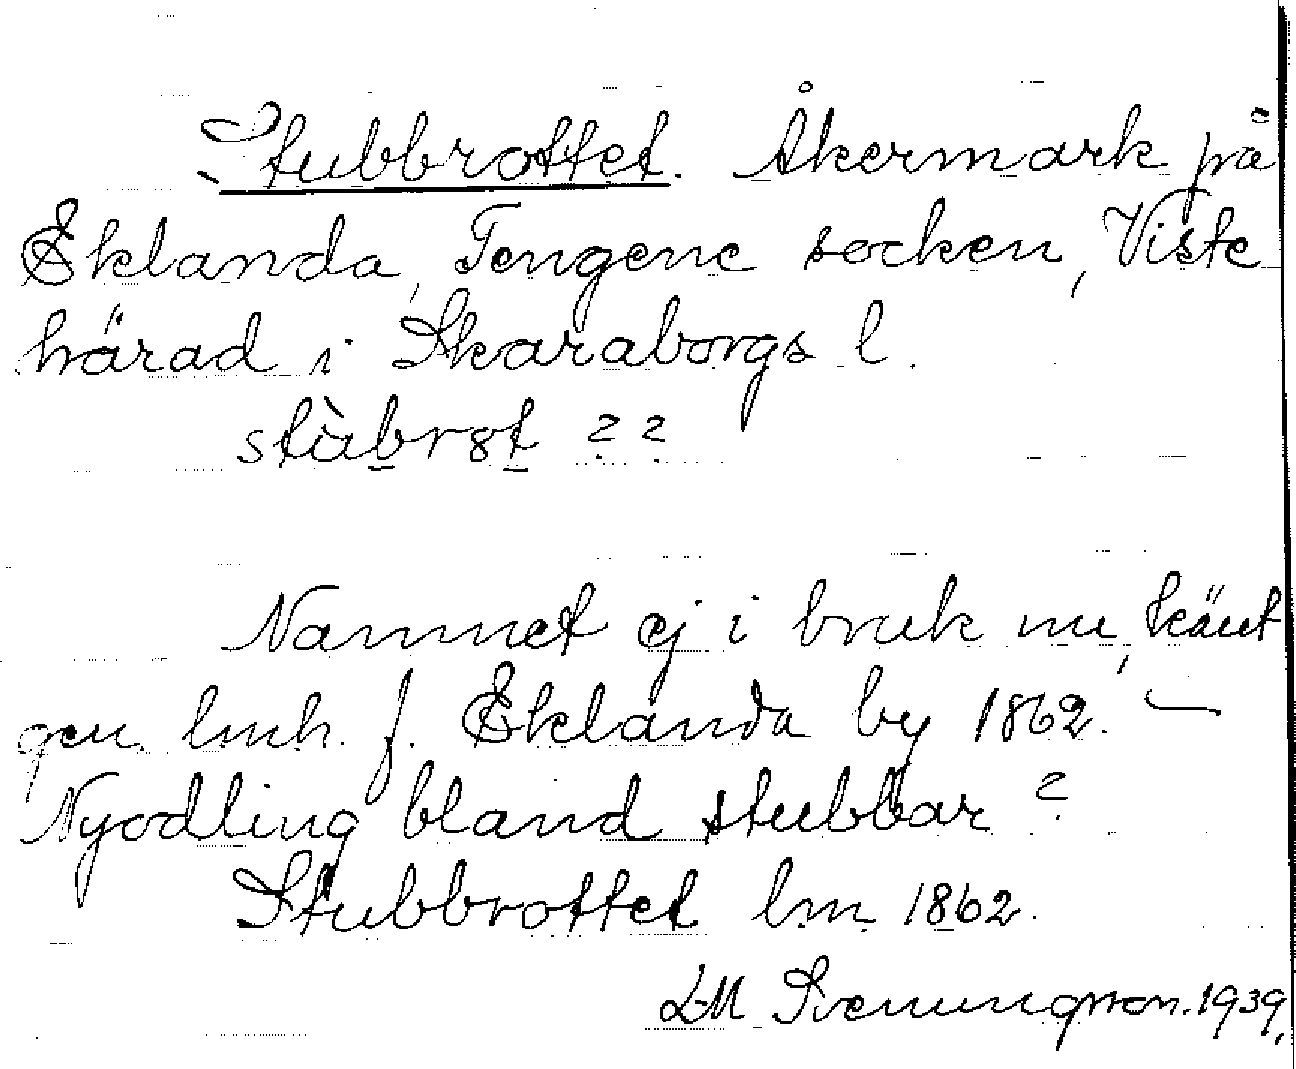 Stubbrottet. Åkermark på
Eklanda, Tengene socken, Viste
härad i Skaraborgs l.
stùbrst ??
Namnet ej i bruk nu, känt
gen. lmh. f. Eklanda by 1862. —
Nyodling bland stubbar?
Stubbrottet lm 1862.
LM Svenungsson. 1939.